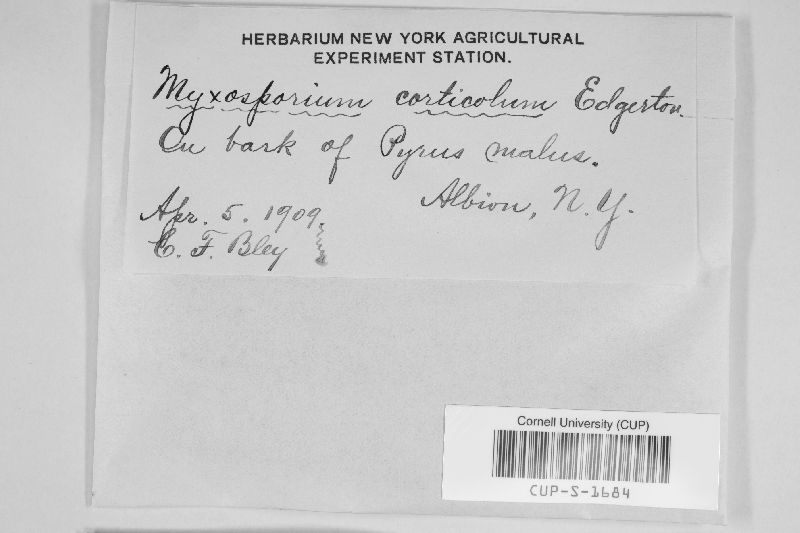 HERBARIUM NEW YORK AGRICULTURAL
EXPERIMENT STATION.
Myxosporium corticolum Edgerton.
On bark of Pyrus malus.
Albion, N. Y.
Apr. 5. 1909.
C. F. Bley
Cornell University (CUP)
CUP-S-1684